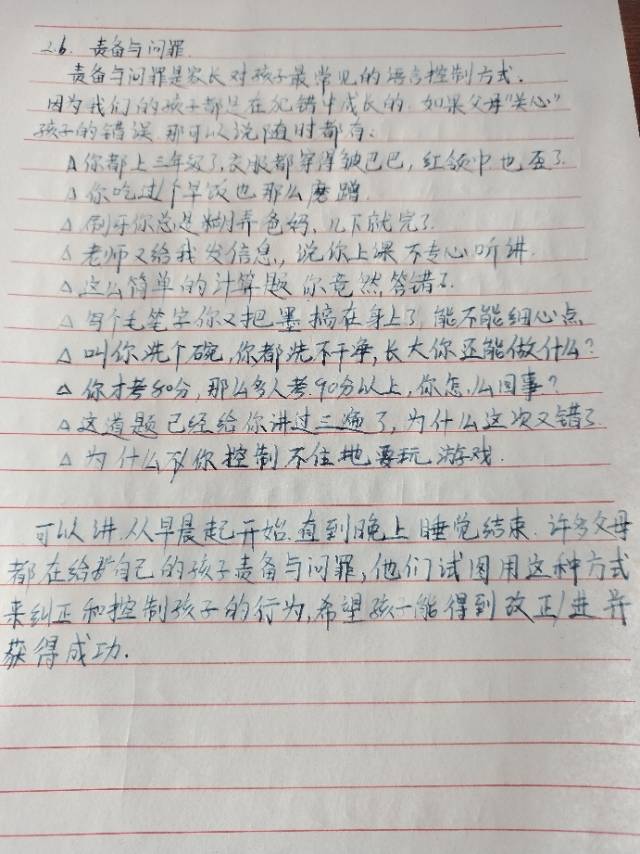 2.6. 责备与问罪
责备与问罪是家长对孩子最常见的语言控制方式.
因为我们的孩子都是在犯错中成长的. 如果父母"关心"
孩子的错误, 那可以说随时都有:
△ 你都上三年级了, 衣服都穿得皱巴巴, 红领巾也歪了.
△ 你吃过个早饭也那么磨蹭.
△ 刷牙你总是糊弄爸妈, 几下就完了.
△ 老师又给我发信息, 说你上课不专心听讲.
△ 这么简单的计算题 你竟然答错了.
△ 写个毛笔字你又把墨搞在身上了, 能不能细心点.
△ 叫你洗个碗, 你都洗不干净, 长大你还能做什么?
△ 你才考80分, 那么多人考90分以上, 你怎么回事?
△ 这道题已经给你讲过三遍了, 为什么这次又错了.
△ 为什么你控制不住地要玩游戏.
可以讲. 从早晨起开始. 直到晚上睡觉结束. 许多父母
都在给自己的孩子责备与问罪, 他们试图用这种方式
来纠正和控制孩子的行为, 希望孩子能得到改进并
获得成功.